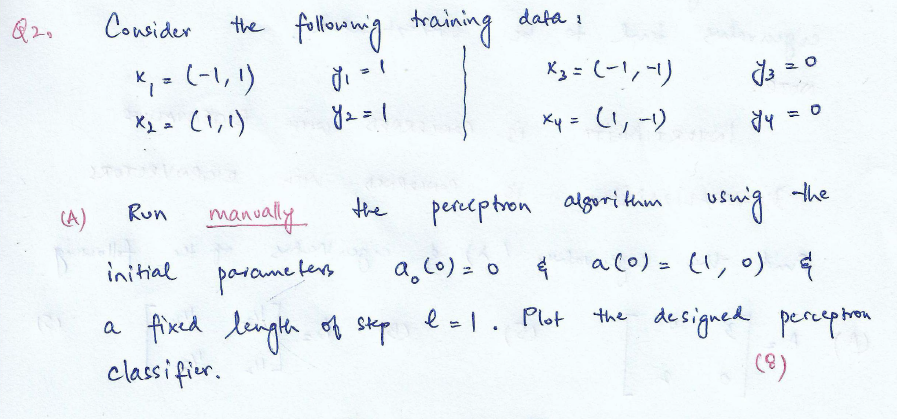 Q2. Consider the following training data :
x₁ = (-1, 1) y₁ = 1 x₃ = (-1, -1) y₃ = 0
x₂ = (1, 1) y₂ = 1 x₄ = (1, -1) y₄ = 0
(A) Run manually the perceptron algorithm using the
initial parameters a₀(0) = 0 & a(0) = (1, 0) &
a fixed length of step l = 1. Plot the designed perceptron
classifier. (8)